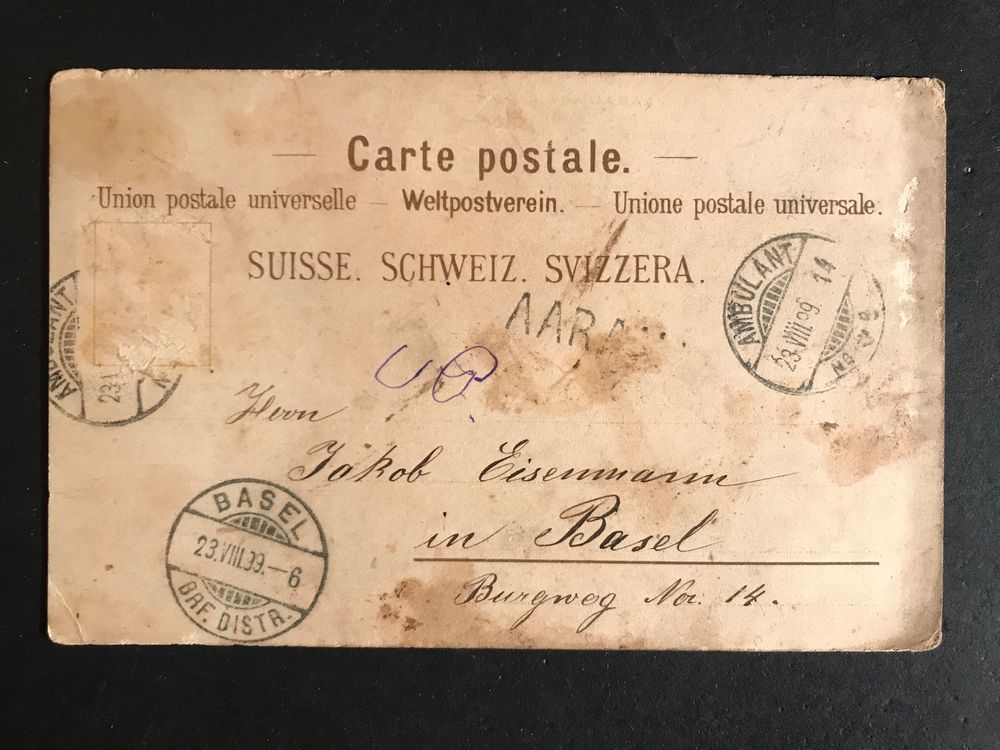 Carte postale.
Union postale universelle — Weltpostverein. — Unione postale universale.
SUISSE. SCHWEIZ. SVIZZERA.
AMBULANT
23.VIII.99 14
AMBULANT
23.
Herrn
Jakob Eisenmann
in Basel
Burgweg No. 14.
BASEL
23.VIII.99.–6
BRF. DISTR.